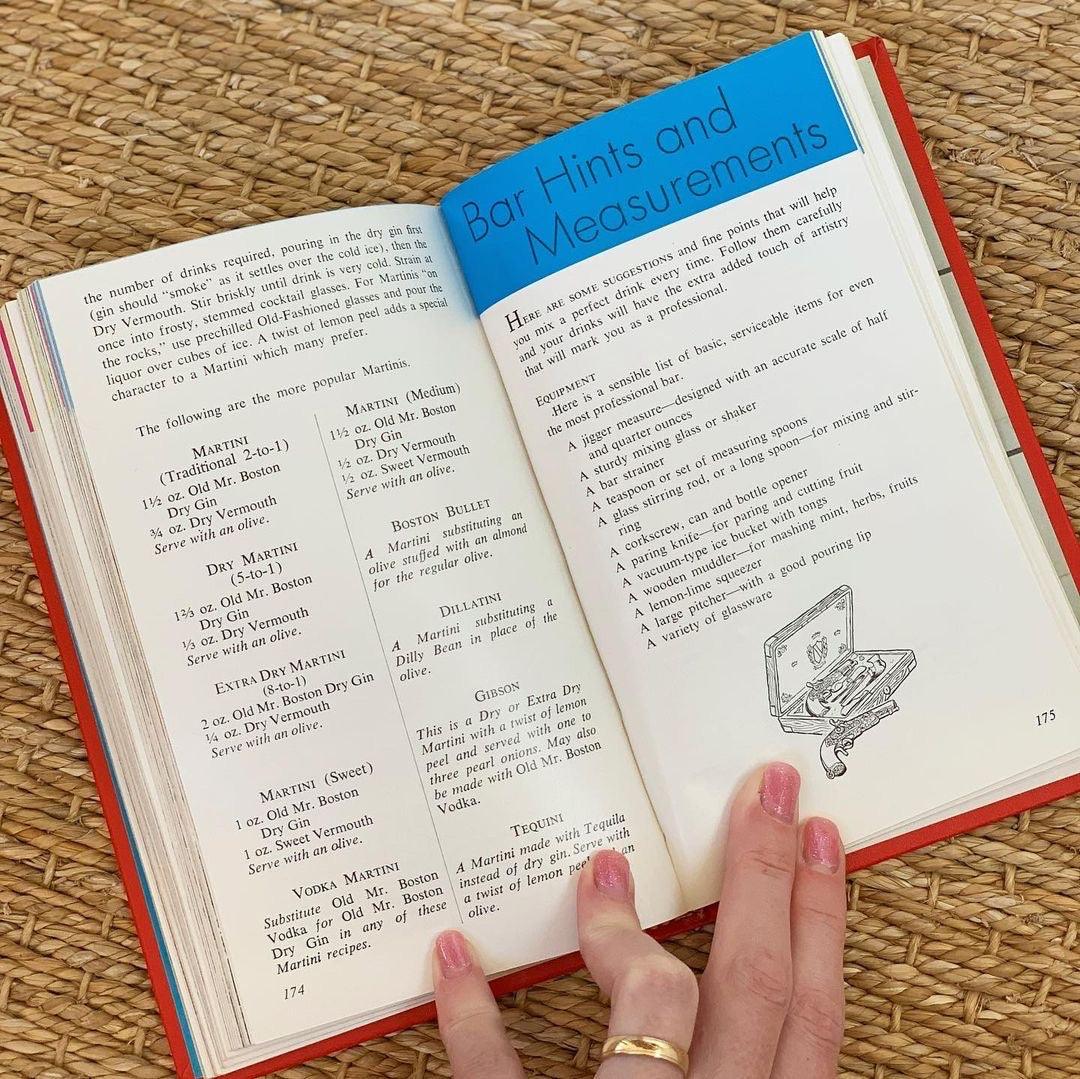 the number of drinks required, pouring in the dry gin first
(gin should "smoke" as it settles over the cold ice), then the
Dry Vermouth. Stir briskly until drink is very cold. Strain at
once into frosty, stemmed cocktail glasses. For Martinis "on
the rocks," use prechilled Old-Fashioned glasses and pour the
liquor over cubes of ice. A twist of lemon peel adds a special
character to a Martini which many prefer.
The following are the more popular Martinis.
MARTINI
(Traditional 2-to-1)
1½ oz. Old Mr. Boston
Dry Gin
¾ oz. Dry Vermouth
Serve with an olive.
DRY MARTINI
(5-to-1)
1⅔ oz. Old Mr. Boston
Dry Gin
⅓ oz. Dry Vermouth
Serve with an olive.
EXTRA DRY MARTINI
(8-to-1)
2 oz. Old Mr. Boston Dry Gin
¼ oz. Dry Vermouth
Serve with an olive.
MARTINI (Sweet)
1 oz. Old Mr. Boston
Dry Gin
1 oz. Sweet Vermouth
Serve with an olive.
VODKA MARTINI
Substitute Old Mr. Boston
Vodka for Old Mr. Boston
Dry Gin in any of these
Martini recipes.
MARTINI (Medium)
1½ oz. Old Mr. Boston
Dry Gin
½ oz. Dry Vermouth
½ oz. Sweet Vermouth
Serve with an olive.
BOSTON BULLET
A Martini substituting an
olive stuffed with an almond
for the regular olive.
DILLATINI
A Martini substituting a
Dilly Bean in place of the
olive.
GIBSON
This is a Dry or Extra Dry
Martini with a twist of lemon
peel and served with one to
three pearl onions. May also
be made with Old Mr. Boston
Vodka.
TEQUINI
A Martini made with Tequila
instead of dry gin. Serve with
a twist of lemon peel an
olive.
174
Bar Hints and
Measurements
HERE ARE SOME SUGGESTIONS and fine points that will help
you mix a perfect drink every time. Follow them carefully
and your drinks will have the extra added touch of artistry
that will mark you as a professional.
EQUIPMENT
Here is a sensible list of basic, serviceable items for even
the most professional bar.
A jigger measure—designed with an accurate scale of half
and quarter ounces
A sturdy mixing glass or shaker
A bar strainer
A teaspoon or set of measuring spoons
A glass stirring rod, or a long spoon—for mixing and stir-
ring
A corkscrew, can and bottle opener
A paring knife—for paring and cutting fruit
A vacuum-type ice bucket with tongs
A wooden muddler—for mashing mint, herbs, fruits
A lemon-lime squeezer
A large pitcher—with a good pouring lip
A variety of glassware
175